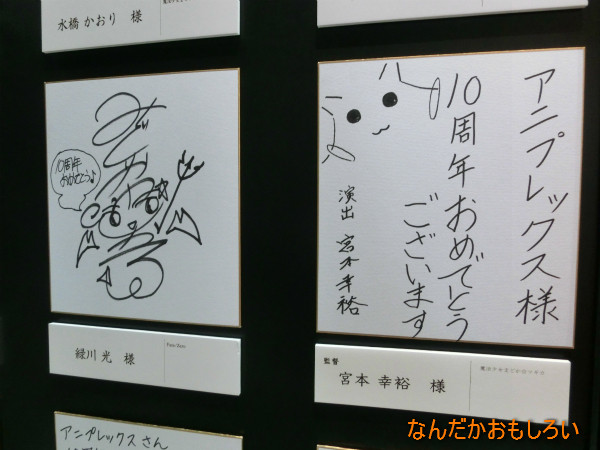 水橋 かおり 様
10周年
おめでとう♪
緑川 光 様
Fate/Zero
アニプレックス様
10周年おめでとう
ございます
演出 宮本幸裕
監督
宮本 幸裕 様
魔法少女まどか☆マギカ
アニプレックスさん
なんだかおもしろい